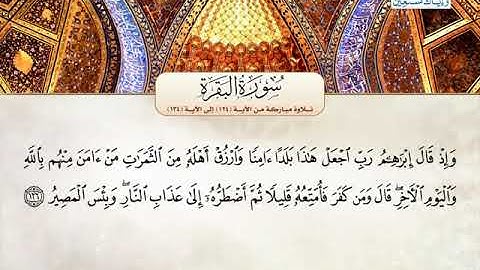 سُورَةُ البَقَرَةِ
تلاوة مباركة من الآية (١٢٤) إلى الآية (١٣٤)
وَإِذْ قَالَ إِبْرَٰهِـۧمُ رَبِّ ٱجْعَلْ هَٰذَا بَلَدًا ءَامِنًا وَٱرْزُقْ أَهْلَهُۥ مِنَ ٱلثَّمَرَٰتِ مَنْ ءَامَنَ مِنْهُم بِٱللَّهِ
وَٱلْيَوْمِ ٱلْءَاخِرِ ۖ قَالَ وَمَن كَفَرَ فَأُمَتِّعُهُۥ قَلِيلًا ثُمَّ أَضْطَرُّهُۥٓ إِلَىٰ عَذَابِ ٱلنَّارِ ۖ وَبِئْسَ ٱلْمَصِيرُ ١٢٦